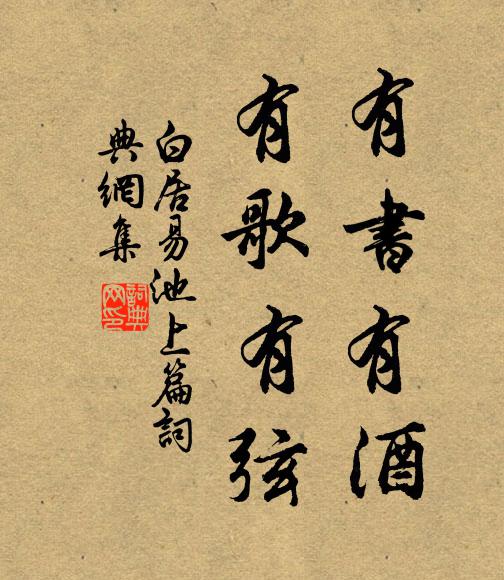 有書有酒
有歌有弦
白居易池上篇詞
典網集
詞典
网印